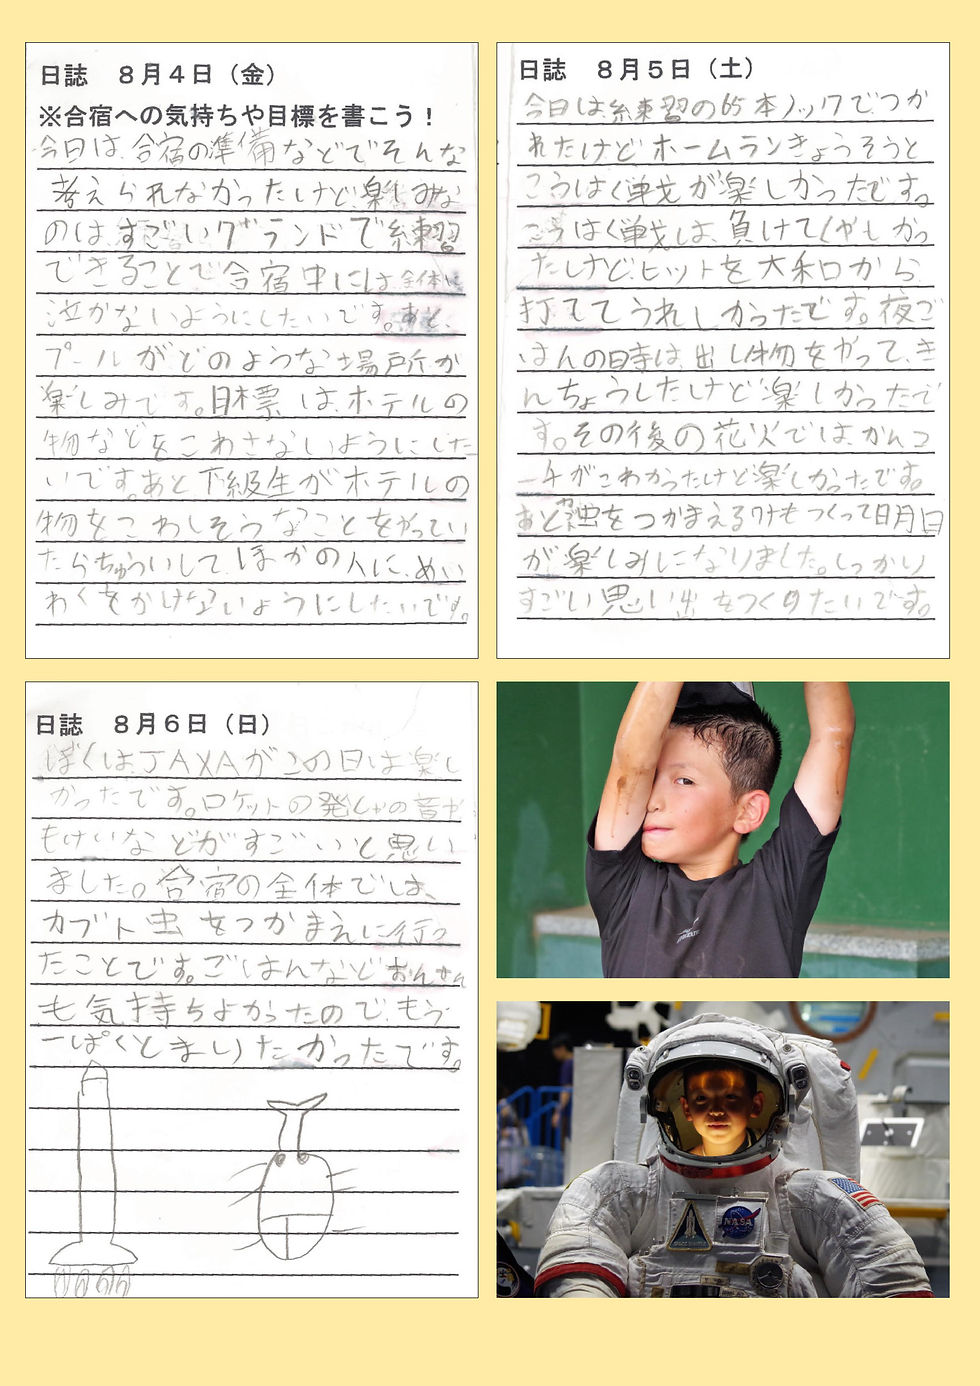 日誌　8月4日（金）
※合宿への気持ちや目標を書こう！
今日は、合宿の準備などでそんな
考えられなかったけど、楽しみな
のは、すごいグランドで練習
できることで合宿中には、全体に
泣かないようにしたいです。あと、
プールがどのような場所か
楽しみです。目標は、ホテルの
物などをこわさないようにした
いです。あと下級生がホテルの
物をこわしそうなことをやってい
たらちゅういして、ほかの人に、めい
わくをかけないようにしたいです。
日誌　8月5日（土）
今日は練習の65本ノックでつか
れたけどホームランきょうそうと
こうはく戦が楽しかったです。
こうはく戦は、負けてくやしかっ
たしけど、ヒットを大和口から
打ててうれしかったです。夜ご
はんの時は、出し物をやって、き
んちょうしたけど楽しかったで
す。その後の花火では、かんコ
ーチがこわかったけど楽しかったです。
あと虫をつかまえるワナもつくって明日
が楽しみになりました。しっかり
すごい思い出をつくりたいです。
日誌　8月6日（日）
ぼくは、JAXAがこの日は楽し
かったです。ロケットの発しゃの音や
もけいなどがすごいと思い
ました。合宿の全体では、
カブト虫をつかまえに行っ
たことです。ごはんなどおんせん
も気持ちよかったので、もう
一ぱくとまりたかったです。
NASA